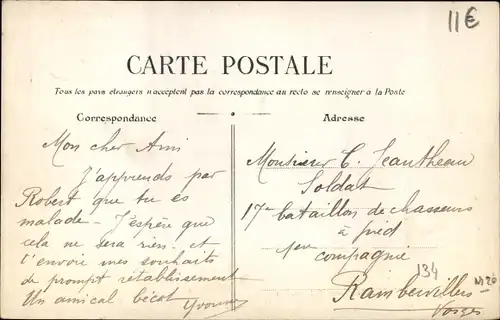 11€
CARTE POSTALE
Tous les pays étrangers n'acceptent pas la correspondance au recto se renseigner à la Poste
Correspondance
Adresse
Mon cher Ami
J'apprends par
Robert que tu es
malade - J'espère que
cela ne sera rien et
t'envoie mes souhaits
de prompt rétablissement
Un amical bécot Yvonne
Monsieur C. Jeantheau
Soldat
17e bataillon de chasseurs
à pied
1ère compagnie
134
Rambervillers
Vosges